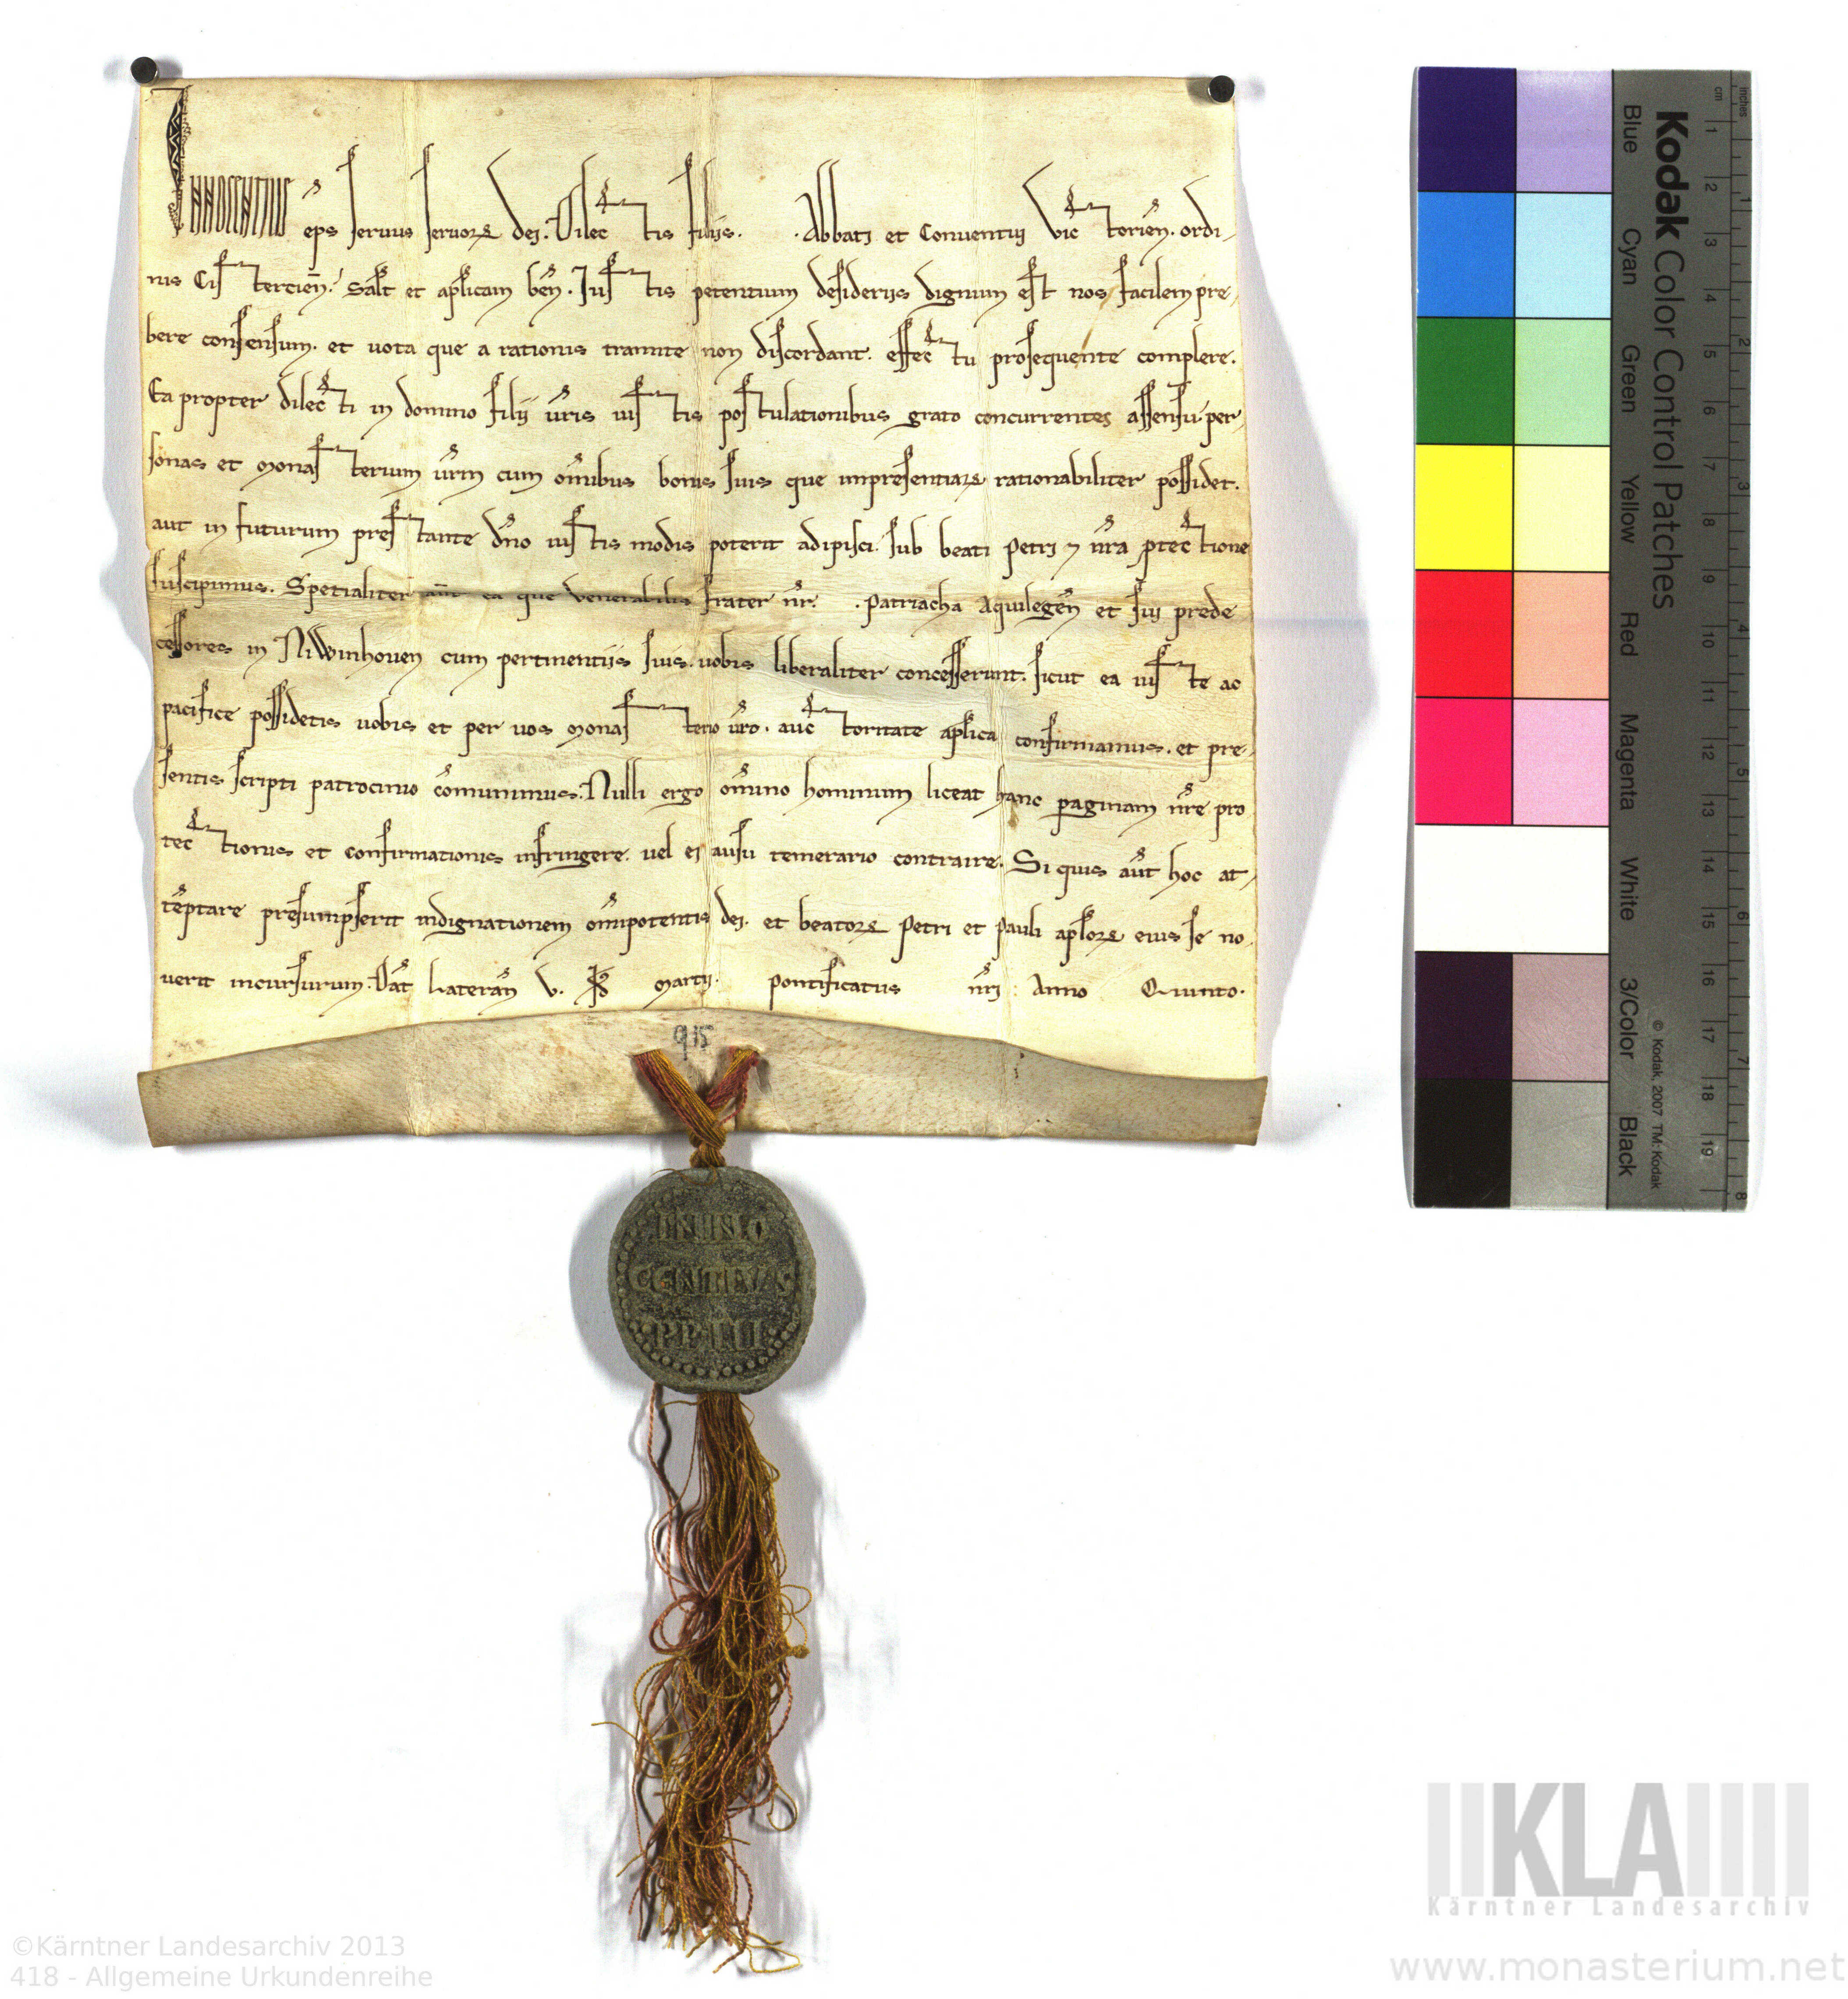 INNOCENTIUS ep̄s seruus seruoꝝ dei. Dilectis filiis. . Abbati et Conuentui Victorien̄. ordi-
nis Cistercien̄. Sal̄t et ap̄licam ben̄. Iustis petentium desideriis dignum est nos facilem pre-
bere consensum. et uota que a rationis tramite non discordant. effectu prosequente complere.
Ea propter dilecti in domino filii ur̄is iustis postulationibus grato concurrentes assensu. per-
sonas et monasterium ur̄m cum om̄ibus bonis suis que inpresentiaꝝ rationabiliter possidet.
aut in futurum prestante dn̄o iustis modis poterit adipisci. sub beati Petri ⁊ nr̄a ꝓtectione
suscipimus. Spetialiter aūt ea que venerabilis frater nr̄. . patriacha Aquilegen̄ et sui prede
cessores in Niwinhouen cum pertinentiis suis. uobis liberaliter concesserunt. sicut ea iuste ac
pacifice possidetis uobis et per uos monasterio ur̄o. auctoritate ap̄lica confirmamus. et pre-
sentis scripti patrocinio com̄unimus. Nulli ergo om̄ino hominum liceat hanc paginam nr̄e pro
tectionis et confirmationis infringere. uel ei ausu temerario contraire. Si quis aūt hoc at-
tēptare presumpserit indignationem om̄ipotentis dei. et beatoꝝ Petri et Pauli ap̄loꝝ eius se no-
uerit incursurum. Dat̄ Lateran̄ V. kl̄ Martii. pontificatus nr̄i Anno Quinto.
915
INNO
CENTIVS
PP III
Kodak Color Control Patches
Blue Cyan Green Yellow Red Magenta White 3/Color Black
© Kodak, 2007 TM: Kodak
cm 1 2 3 4 5 6 7 8 9 10 11 12 13 14 15 16 17 18 19
inches 1 2 3 4 5 6 7 8
KLA
Kärntner Landesarchiv
©Kärntner Landesarchiv 2013
418 - Allgemeine Urkundenreihe
www.monasterium.net